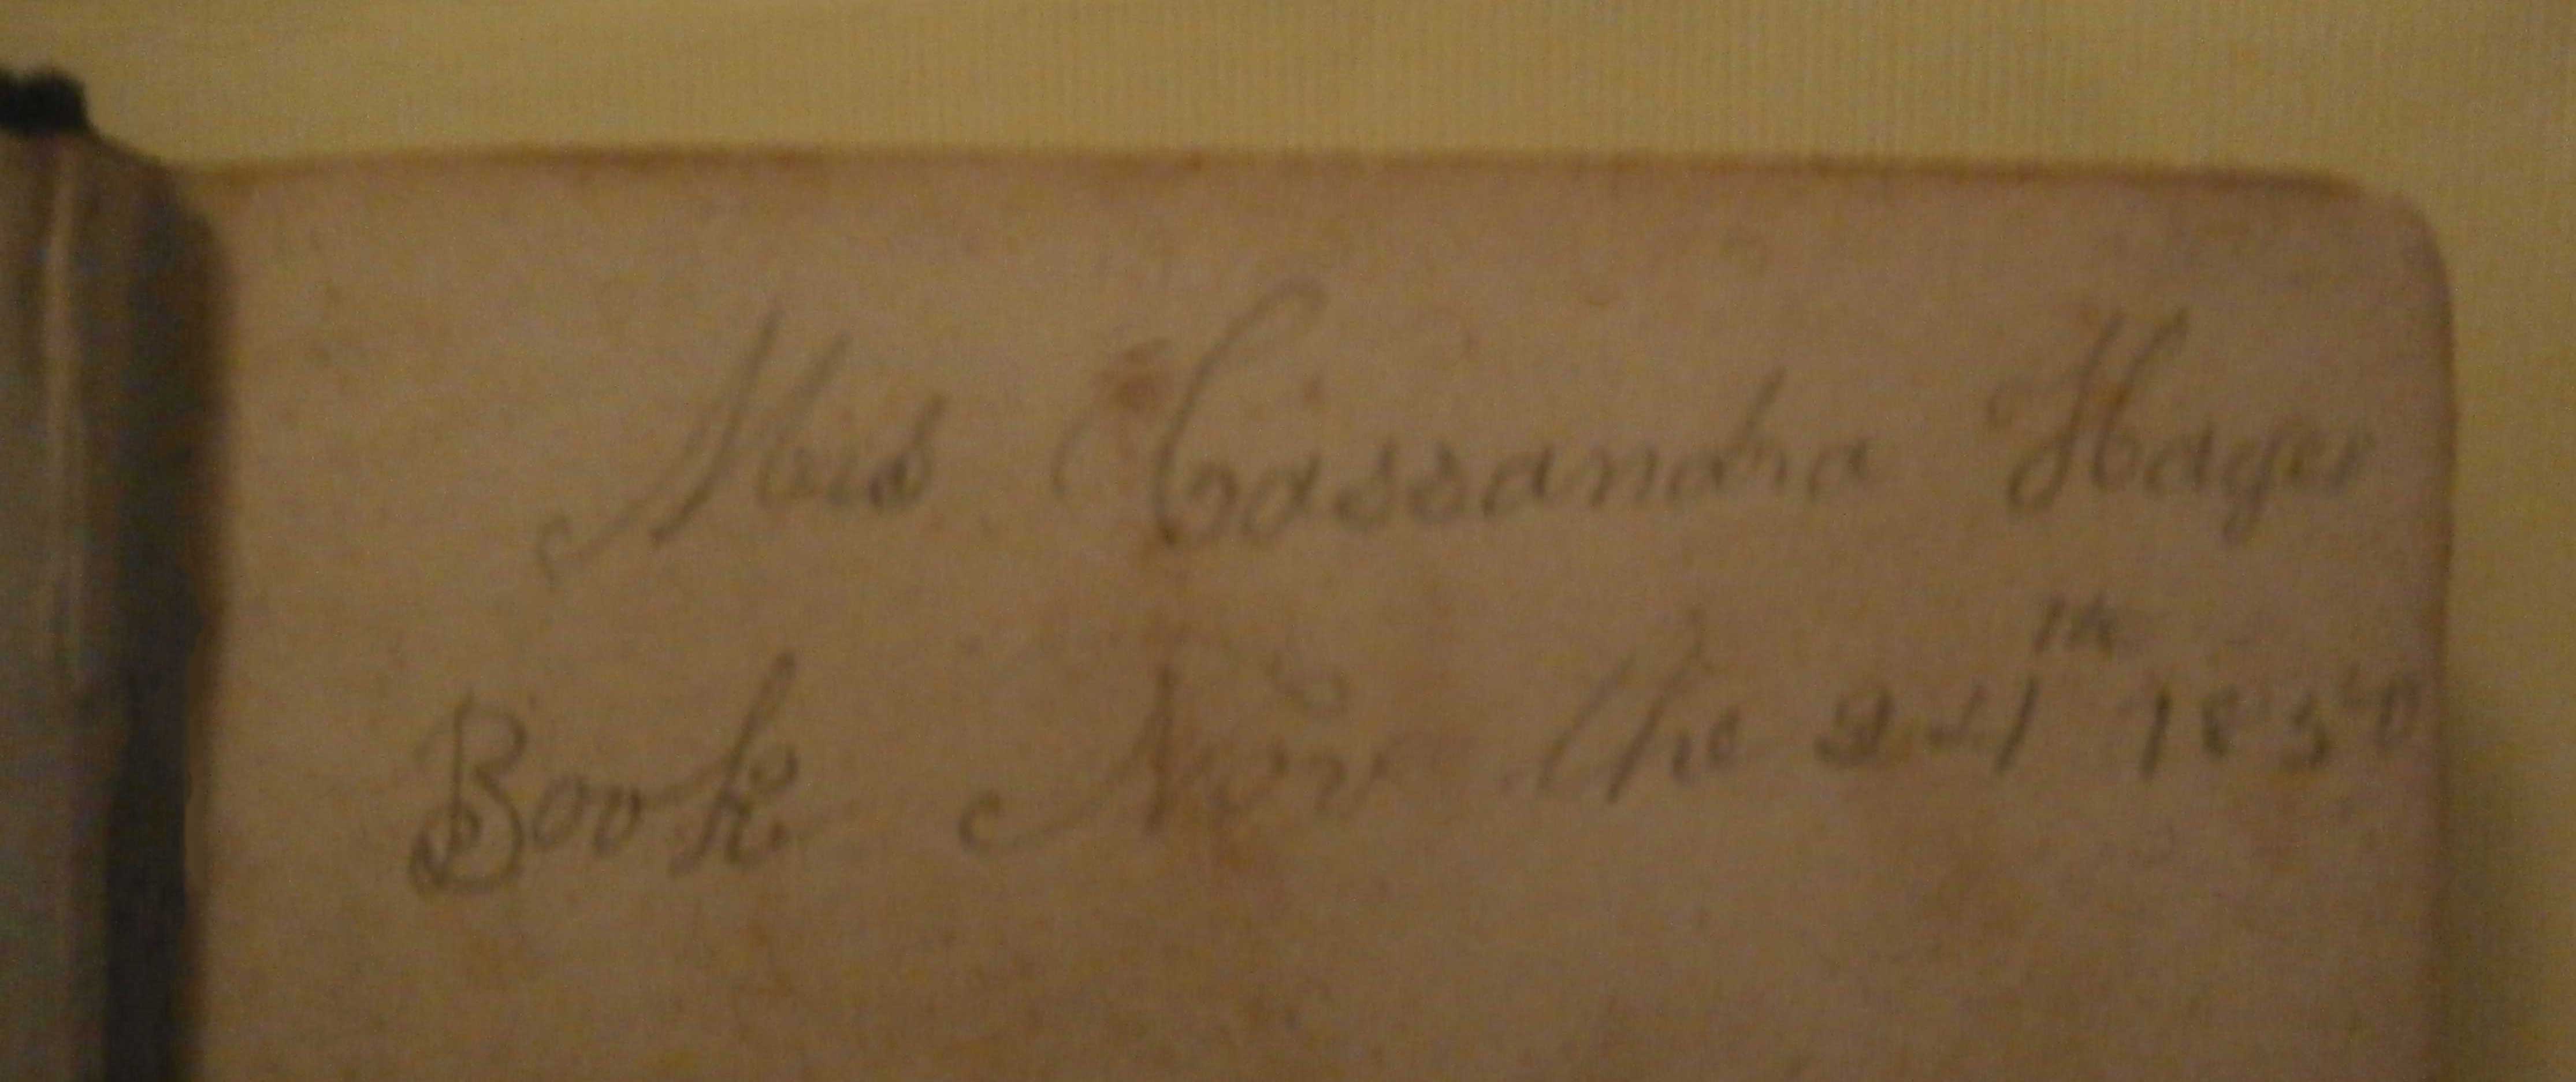 Miss Cassandra Hager
Book Nov the 24th 1850